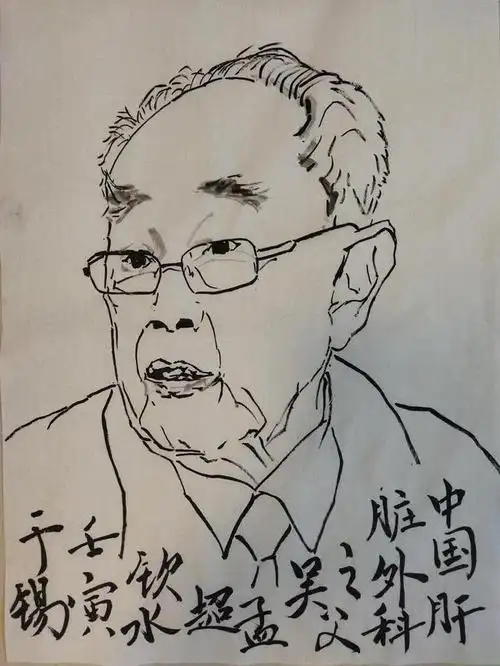 中国肝
脏外科
之父
吴
孟
超
钦水
壬寅
于锡